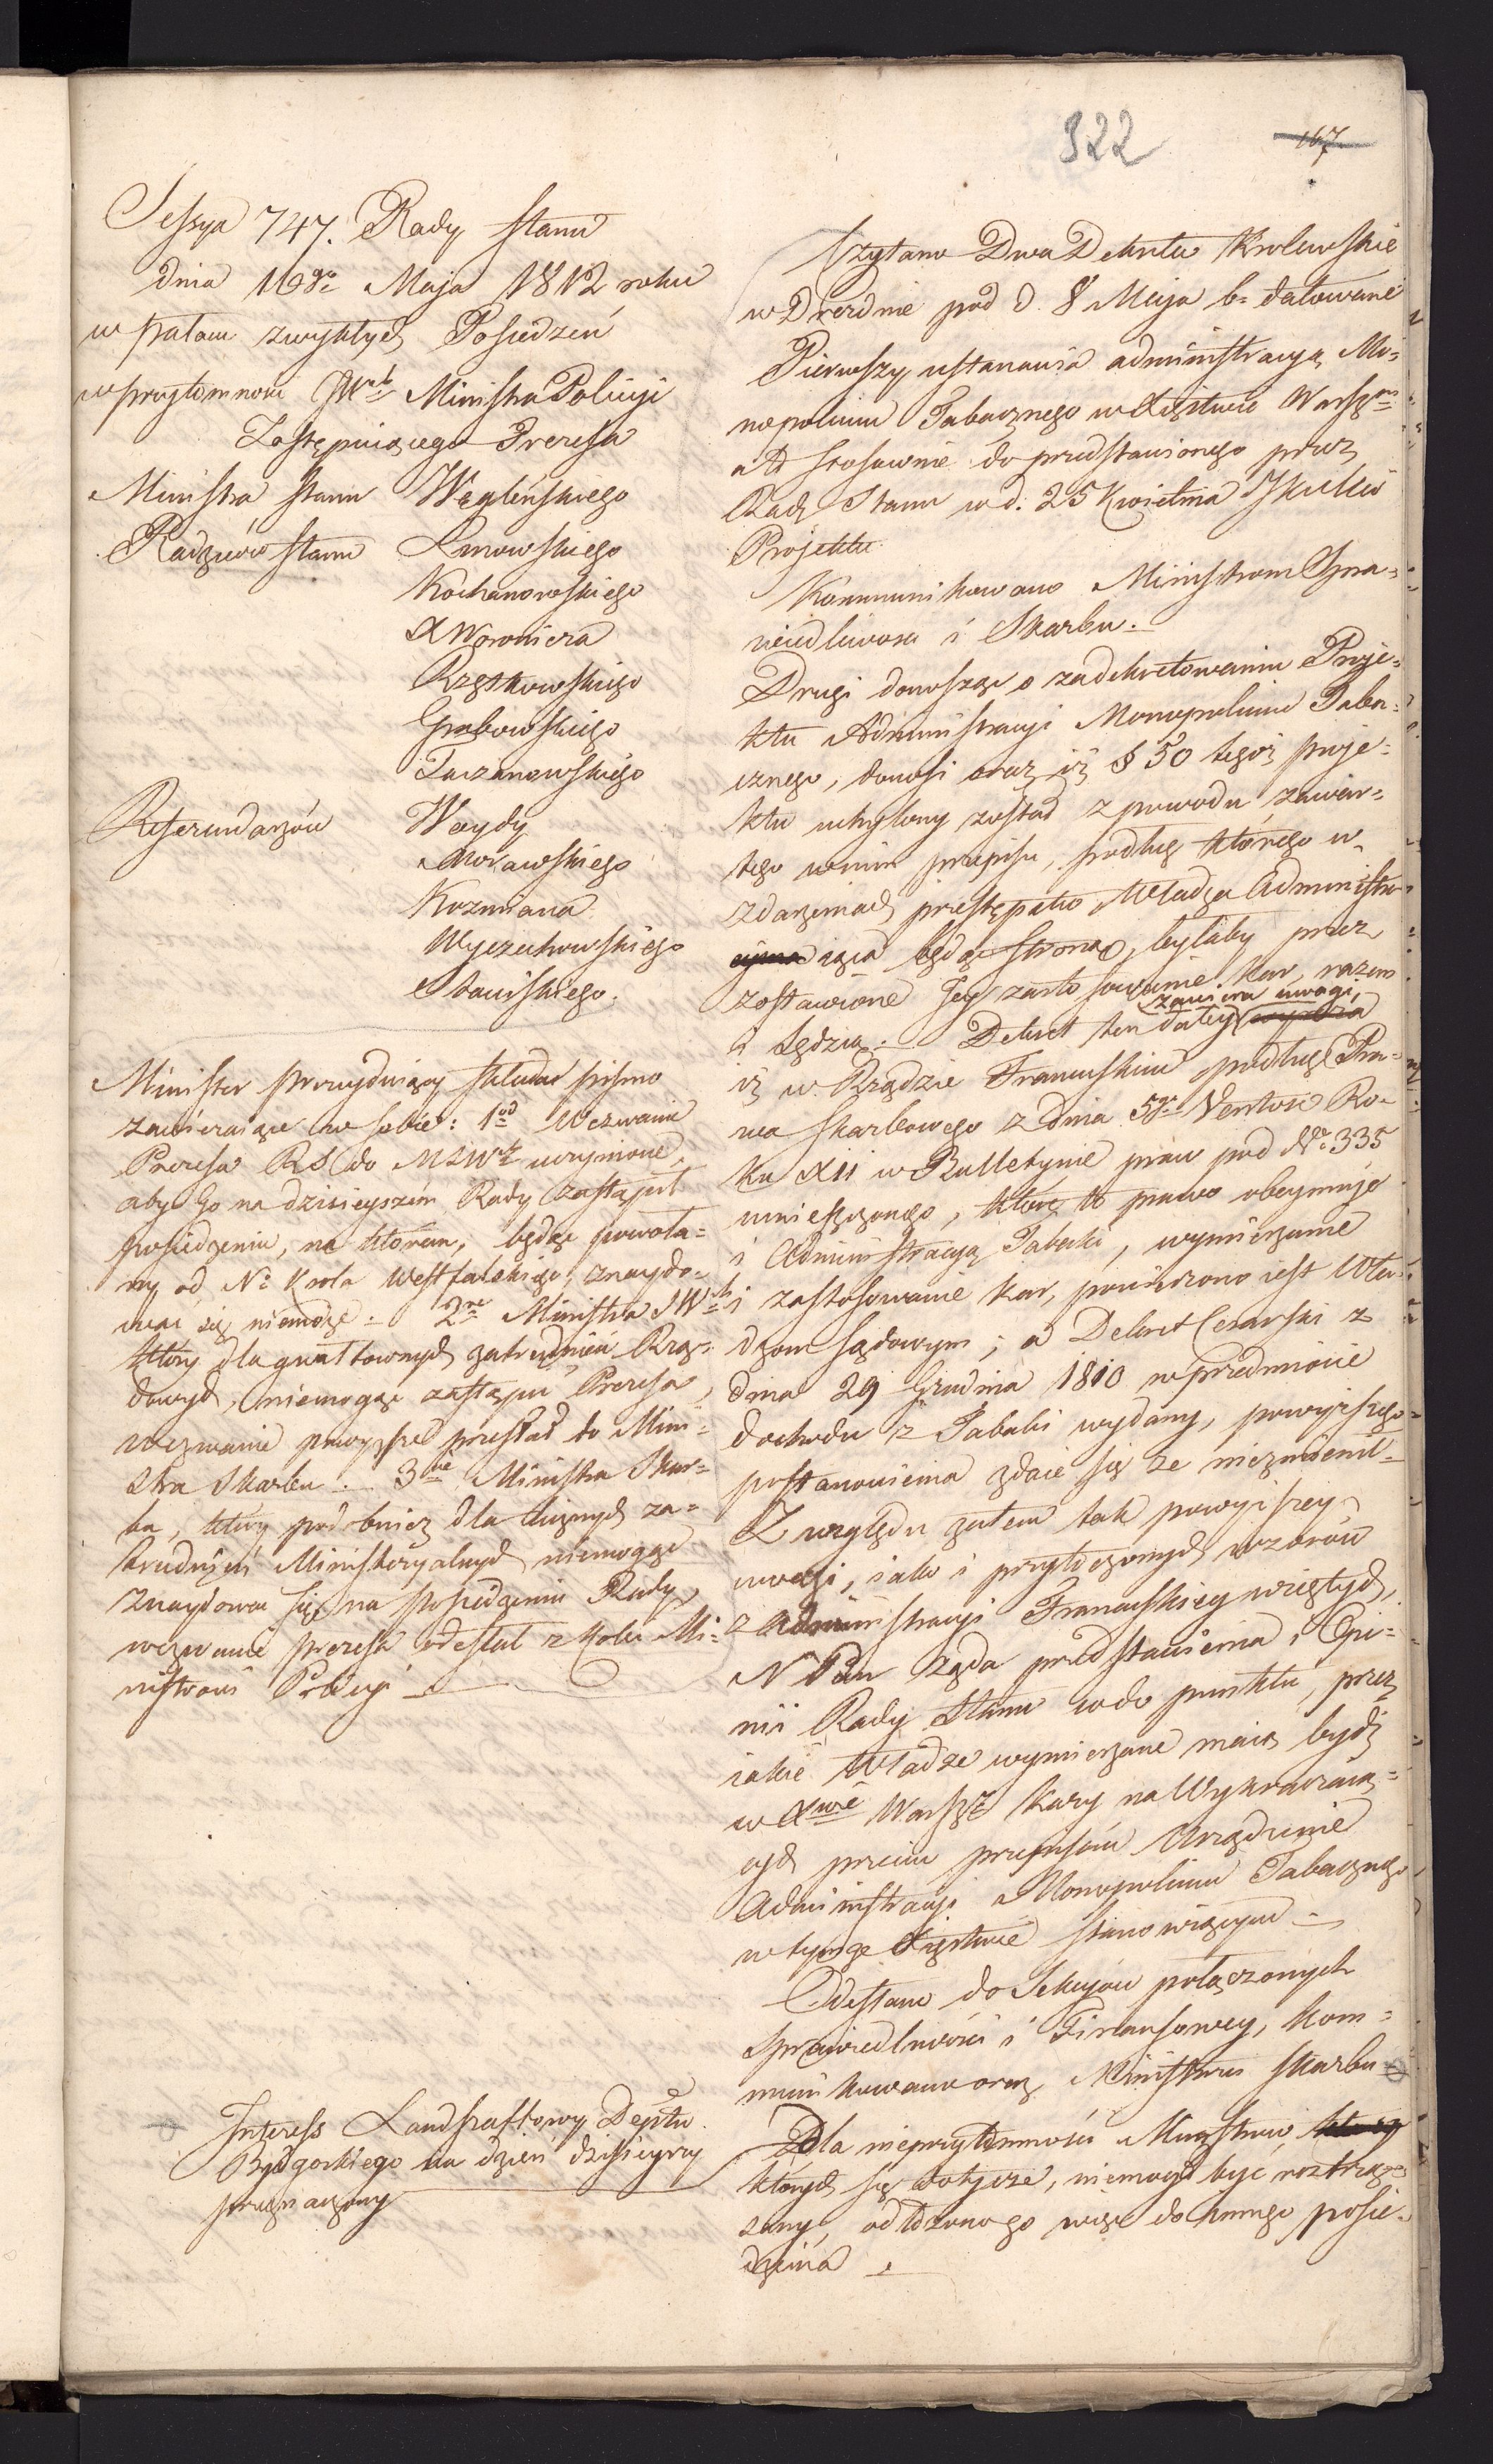 322
167
Sessya 747. Rady Stanu
dnia 16go Maja 1812 roku
w pałacu zwykłych Posiedzeń
w przytomności JW Ministra Policyi
Zastępuiącego Prezesa
Ministra Stanu Węgleńskiego
Radzców Stanu Linowskiego
Kochanowskiego
X Woronicza
Rzętkowskiego
Grabowskiego
Taczanowskiego
Referendarzów Woydy
Morawskiego
Kozmiana
Wyczechowskiego
Stawiskiego.
Minister prezyduiący składał pismo
zawieraiące w sobie: 1od Wezwanie
Prezesa RS do MSW uczynione,
aby Go na dzisieyszém Rady zastąpił
posiedzeniu, na którem, będąc powoła=
ny od N. Króla Westfalskiego, znaydo=
wać się niemoże. 2re Ministra SW
który dla gwałtownych zatrudnień Rzą=
dowych, niemogąc zastąpić Prezesa,
wezwanie powyższe przesłał do Mini=
stra Skarbu. 3cie Ministra Skar=
bu, który podobnież dla licznych za=
trudnień Ministeryalnych niemogąc
znaydować się na posiedzeniu Rady,
wezwanie prezesa odesłał z kolei Mi=
nistrowi Policyi
Interess Landszaftowy Deptu
Bydgoskiego na dzień dzisieyszy
przeznaczony
Czytano Dwa Dekreta Królewskie
w Dreznie pod d. 8 Maja b. datowane
Pierwszy ustanawia administracyą Mo=
nopolium Tabacznego w Xięstwie Warsz
a to stosownie do przedstawionego przez
Radę Stanu w d. 25 Kwietnia
Projektu.
Kommunikowano Ministrom Spra=
wiedliwości i Skarbu.
Drugi donosząc o zadekretowaniu Proje=
ktu Administracyi Monopolium Taba=
cznego, donosi oraz iż § 50 tegoż proje=
ktu uchylony został z powodu zawar=
tego w nim przepisu, podług którego w
zdarzeniach przestępstw Władza Administru
cyina iąca będąc stroną, byłaby przez
zostawione Jey zastosowanie kar, razem
i Sędzią. Dekret ten daley zawiera uwagi,
iż w Rządzie Francuskim podług Pra=
wa Skarbowego z dnia 5go Ventose Ro=
ku XII w Bulletynie praw pod No 335
umieszczonego, które to prawo obeymuje
i Administracyą Tabaki, wymierzanie
i zastosowanie kar, powierzono iest Wła=
dzom Sądowym; a Dekret Cesarski z
dnia 29 Grudnia 1810 w przedmiocie
dochodu z Tabaki wydany, powyższego
postanowienia zdaie się że niezmienił.
Z względu zatem tak powyższey
uwagi, iako i przytoczonych wzorów
z Administracyi Francuskiey wziętych,
N Pan żąda przedstawienia i Opi=
nii Rady Stanu w do punktu, przez
iakie Władze wymierzane maią bydź
w Xwie Warsz Kary na Wykraczaią=
cych przeciw przepisom Urządzenie
Administracyi Monopolium Tabacznego
w tymże Xięstwie stanowiącym
Odesłano do Sekcyów połączonych
Sprawiedliwości i Finansowey, kom=
munikowano oraz Ministrowi Skarbu
Dla nieprzytomności Ministrów
których się dotycze, niemogł być roztrzą=
sany, odłożono go więc do innego posie=
dzenia.